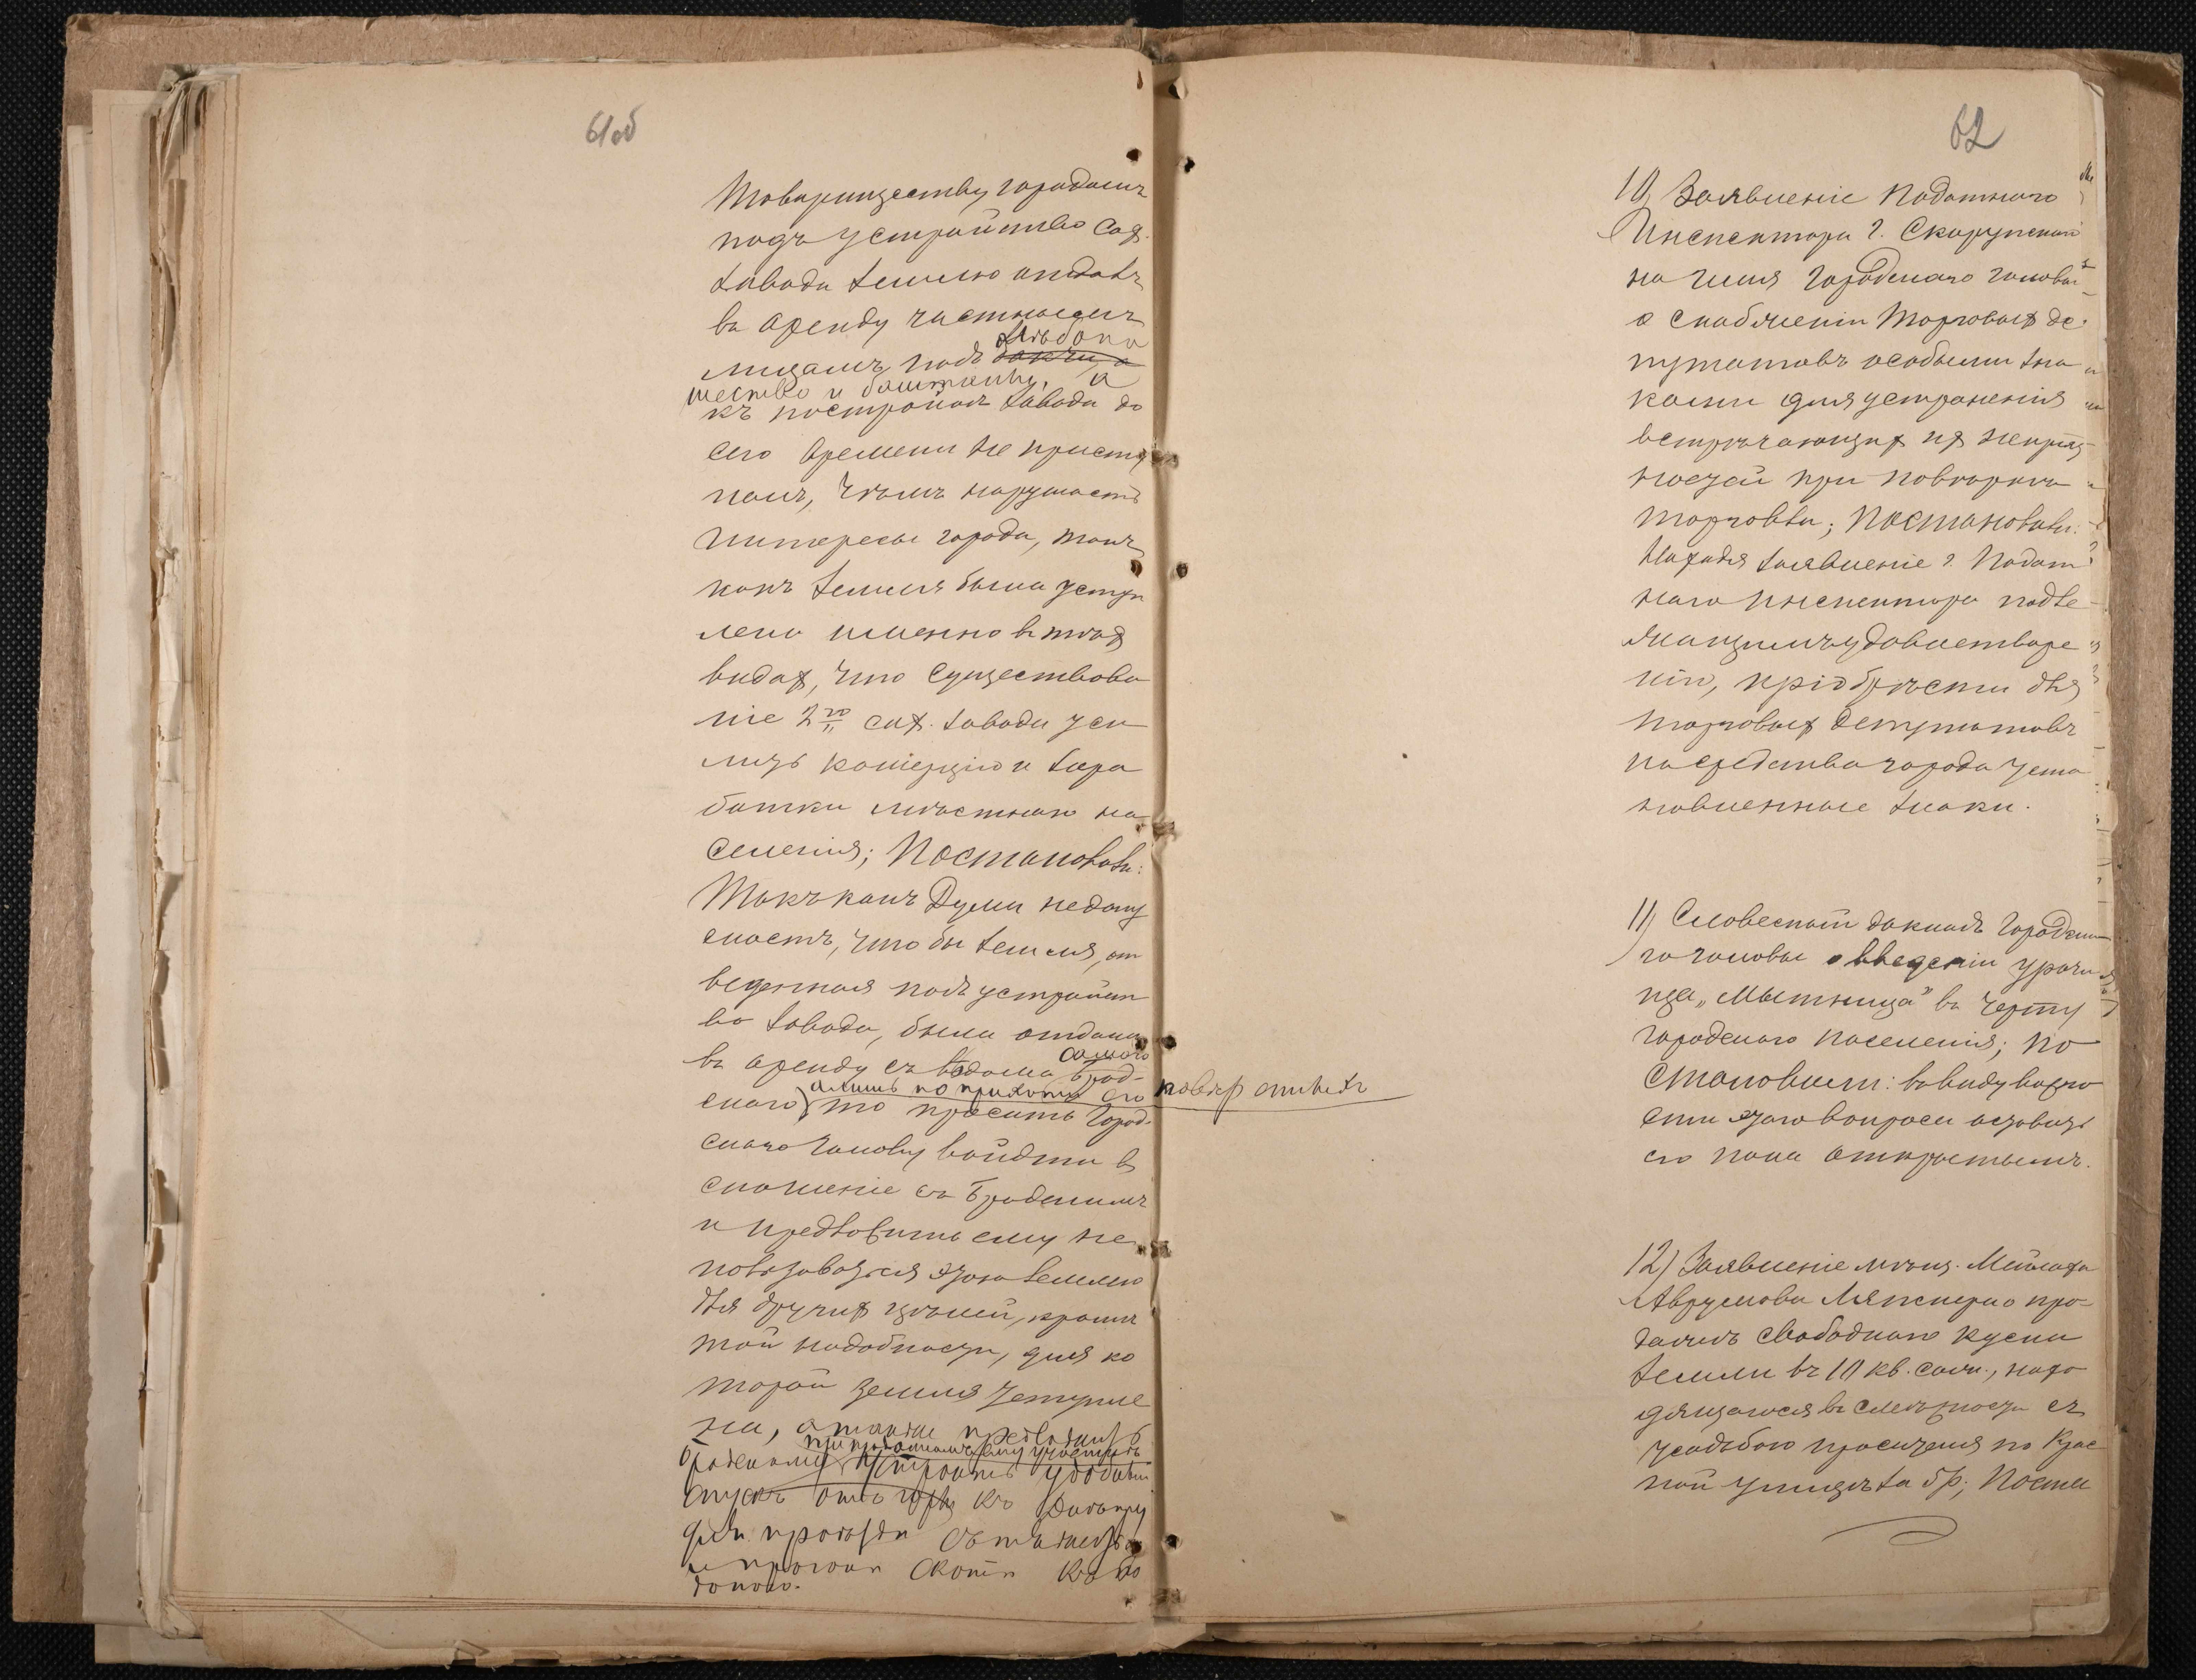 61об
Товариществу городомъ
подъ устройство сах.
завода землю отдавъ
въ аренду частнымъ
лицамъ подъ хлѣбопа
шество и баштаны, а
къ постройкѣ завода до
сего времени не присту
палъ, чѣмъ нарушаетъ
интересы города, такъ
какъ земля была уступ
лена именно въ тѣхъ
видахъ, что существова
ніе 2го сах. завода уси
литъ комерцію и зара
ботки мѣстнаго на
селенія; Постановили:
Такъ какъ Дума не допу
скаетъ, что бы земля, от
веденная подъ устройст
во завода, была отдана
въ аренду съ вѣдома самого Брод-
скаго, то просить Город-
скаго Голову войдти въ
сношеніе съ Бродскимъ
и предложить ему не
пользоваться этою землею
для другихъ цѣлей, кромѣ
той надобности, для ко
торой земля уступле
на, а также предложить
Бродскому устроить удобный
спускъ отъ горы къ
для проѣзда
и прогона скота къ во
допою.
62
10) Заявленіе Податнаго
Инспектора г. Скарупскаго
на имя Городскаго головы
о снабженіи Торговыхъ де-
путатовъ особыми зна
ками для устраненія
встрѣчающихся непріят
ностей при повѣркѣ
торговли; Постановили:
Находя заявленіе г. Подат
наго инспектора подле
жащимъ удовлетворе
нію, пріобрѣсти для
торговыхъ депутатовъ
на средства города уста
новленные знаки.
11) Словесный докладъ Городска
го головы о введеніи урочи
ща „Мытница" въ черту
городскаго поселенія; По
становили: въ виду важно
сти этого вопроса оставить
его пока открытымъ.
12) Заявленіе мѣщ. Мошка
Аврумова о про-
дажѣ свободнаго куска
земли въ 10 кв. саж., нахо
дящагося въ смежности съ
усадьбою просителя по Крас
ной улицѣ за 5 р.; Поста